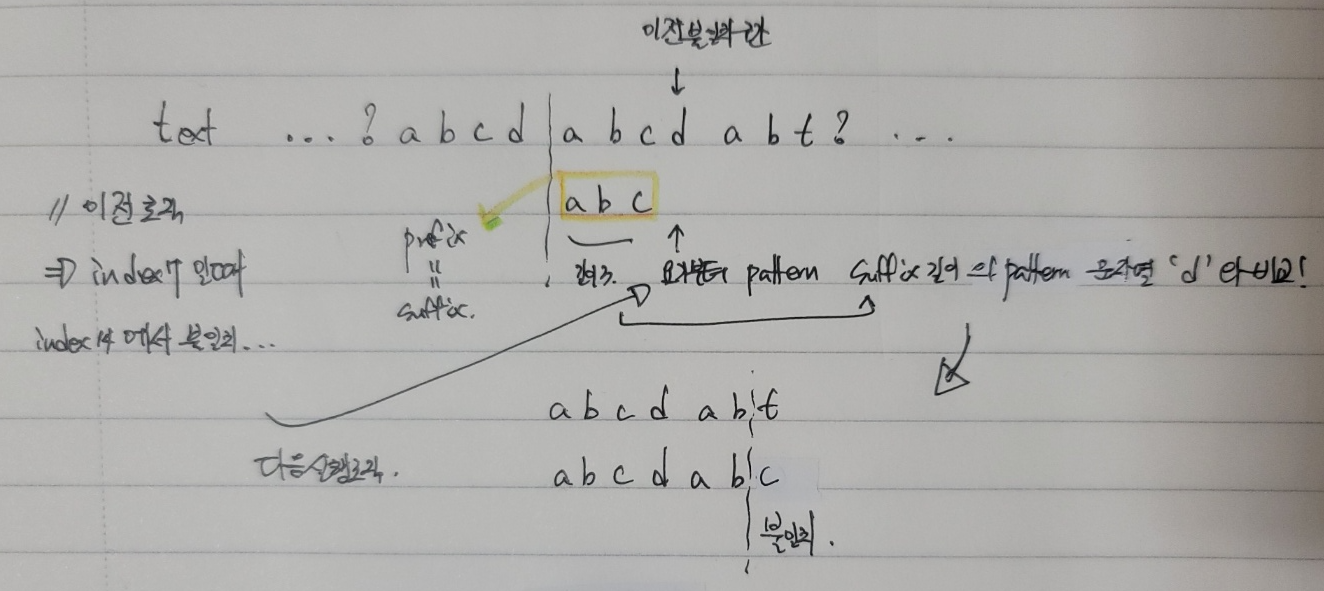 이전불일치 칸
↓
text ... ? a b c d | a b c d a b t ? ...
// 이전 로직 a b c
prefix ↑
⇒ index 7 일때 = 일치. 여기부터 pattern suffix 길이 의 pattern 문자열 'd' 와 비교!
suffix.
index 14 에서 불일치...
a b c d a b t
다음실행로직. a b c d a b c
불일치.